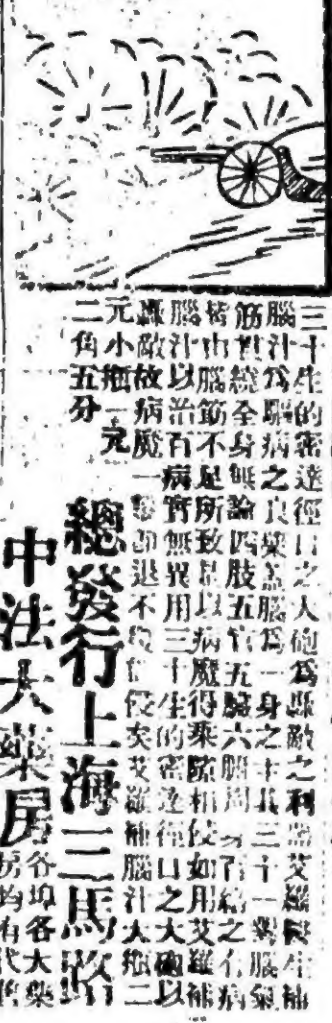 三十生的密達徑口之大砲為轟敵之利器艾羅醫生補
腦汁為驅病之良藥蓋腦為一身之主其三十一對腦氣
筋貫繞全身無論四肢五官五臟六腑周身百節之有病
皆由腦筋不足所致是以病魔得乘隙相侵如用艾羅補
腦汁以治百病實無異用三十生的密達徑口之大砲以
轟敵故病魔一擊即退不復侵矣艾羅補腦汁大瓶二
元小瓶一元
二角五分
總發行上海三馬路
中法大藥房
各埠各大藥
房均有代售